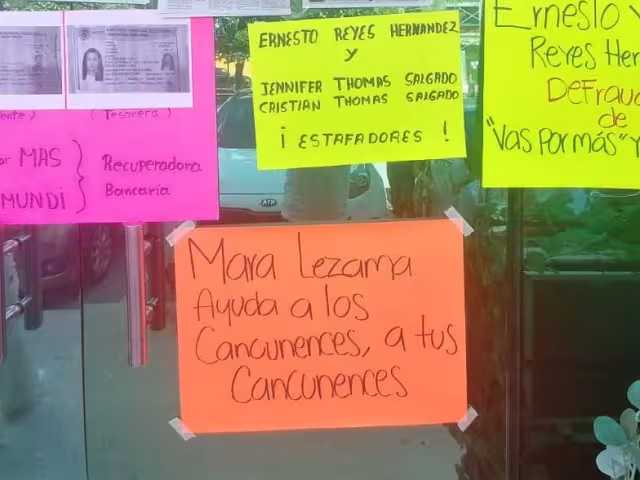 (Tesorera)
MAS
MUNDI
Recuperadora
Bancaria
ERNESTO REYES HERNANDEZ
Y
JENNIFER THOMAS SALGADO
CRISTIAN THOMAS SALGADO
¡ ESTAFADORES !
Ernesto
Reyes
de
"Vas Por más"
Mara Lezama
Ayuda a los
Cancunences, a tus
Cancunences